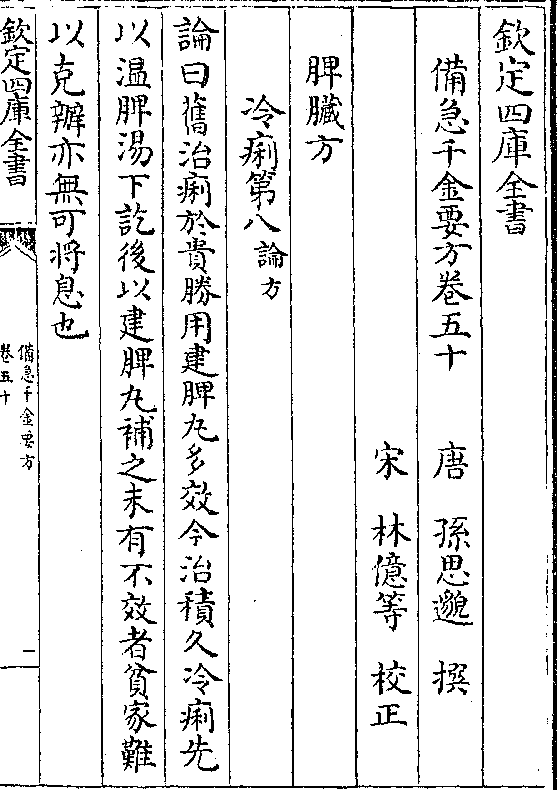 欽定四庫全書
備急千金要方卷五十
唐 孫思邈 撰
宋 林億等 校正
脾臓方
冷痢第八論方
論曰舊治痢於貴勝用建脾丸多效今治積久冷痢先
以温脾湯下訖後以建脾丸補之未有不效者貧家難
以克辦亦無可將息也
欽定四庫全書
備急千金要方
卷五十
一